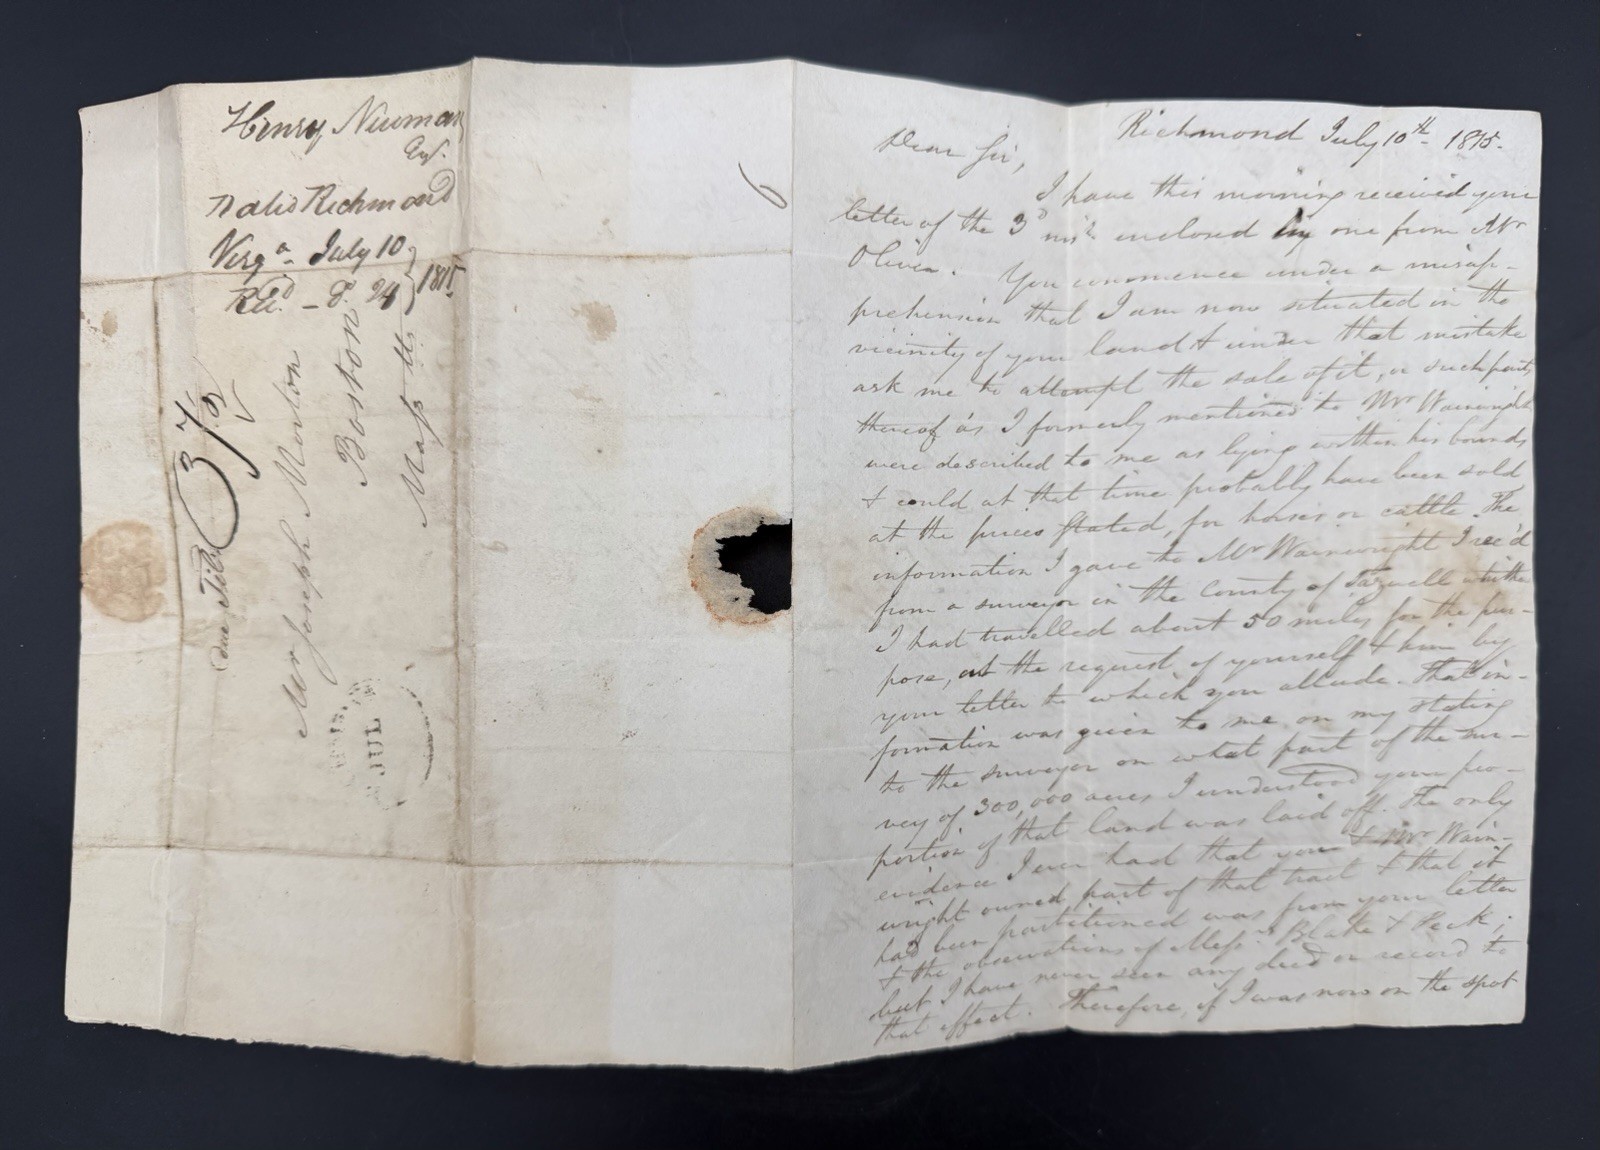 Henry Newman
Esqr.
Dated Richmond
Virga. July 10
Recd. - Do. 24 } 1815
37
due
Mr Joseph Morton
Boston
Masstts.
JUL
6
Richmond July 10th 1815.
Dear Sir,
I have this morning received your
letter of the 3d inst. enclosed by one from Mr
Oliver. You commence under a misap-
prehension that I am now situated in the
vicinity of your land & under that mistake
ask me to attempt the sale of it, or such parts
thereof as I formerly mentioned to Mr Wainwright
were described to me as lying within his bounds
& could at that time probably have been sold
at the prices stated, for horses or cattle. The
information I gave to Mr Wainwright I rec'd
from a surveyor in the County of Tazwell whither
I had travelled about 50 miles for the pur-
pose, at the request of yourself & him by
your letter to which you allude. That in-
formation was given to me on my stating
to the surveyor on what part of the sur-
vey of 300,000 acres I understood your pro-
portion of that land was laid off. The only
evidence I ever had that you & Mr Wain-
wright owned part of that tract & that it
had been partitioned was from your letter
& the observations of Messrs Blake & Peck;
but I have never seen any deed or record to
that effect. Therefore, if I was now on the spot